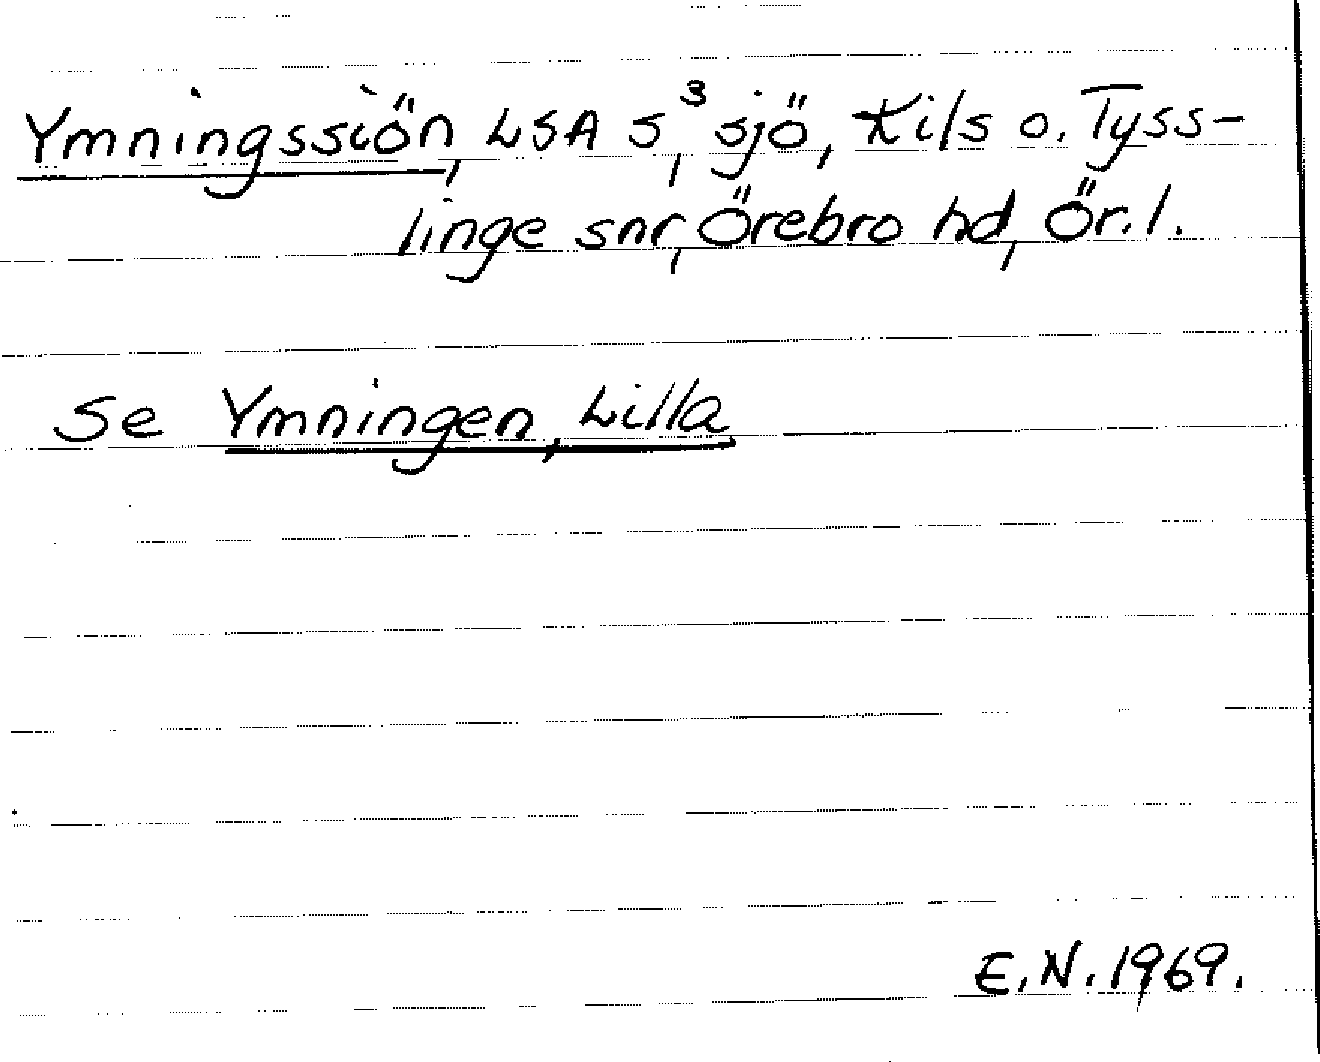 Ymningssiön, LSA S³, sjö, Kils o. Tyss-
linge snr, Örebro hd, Ör. l.
Se Ymningen, Lilla
E.N. 1969.